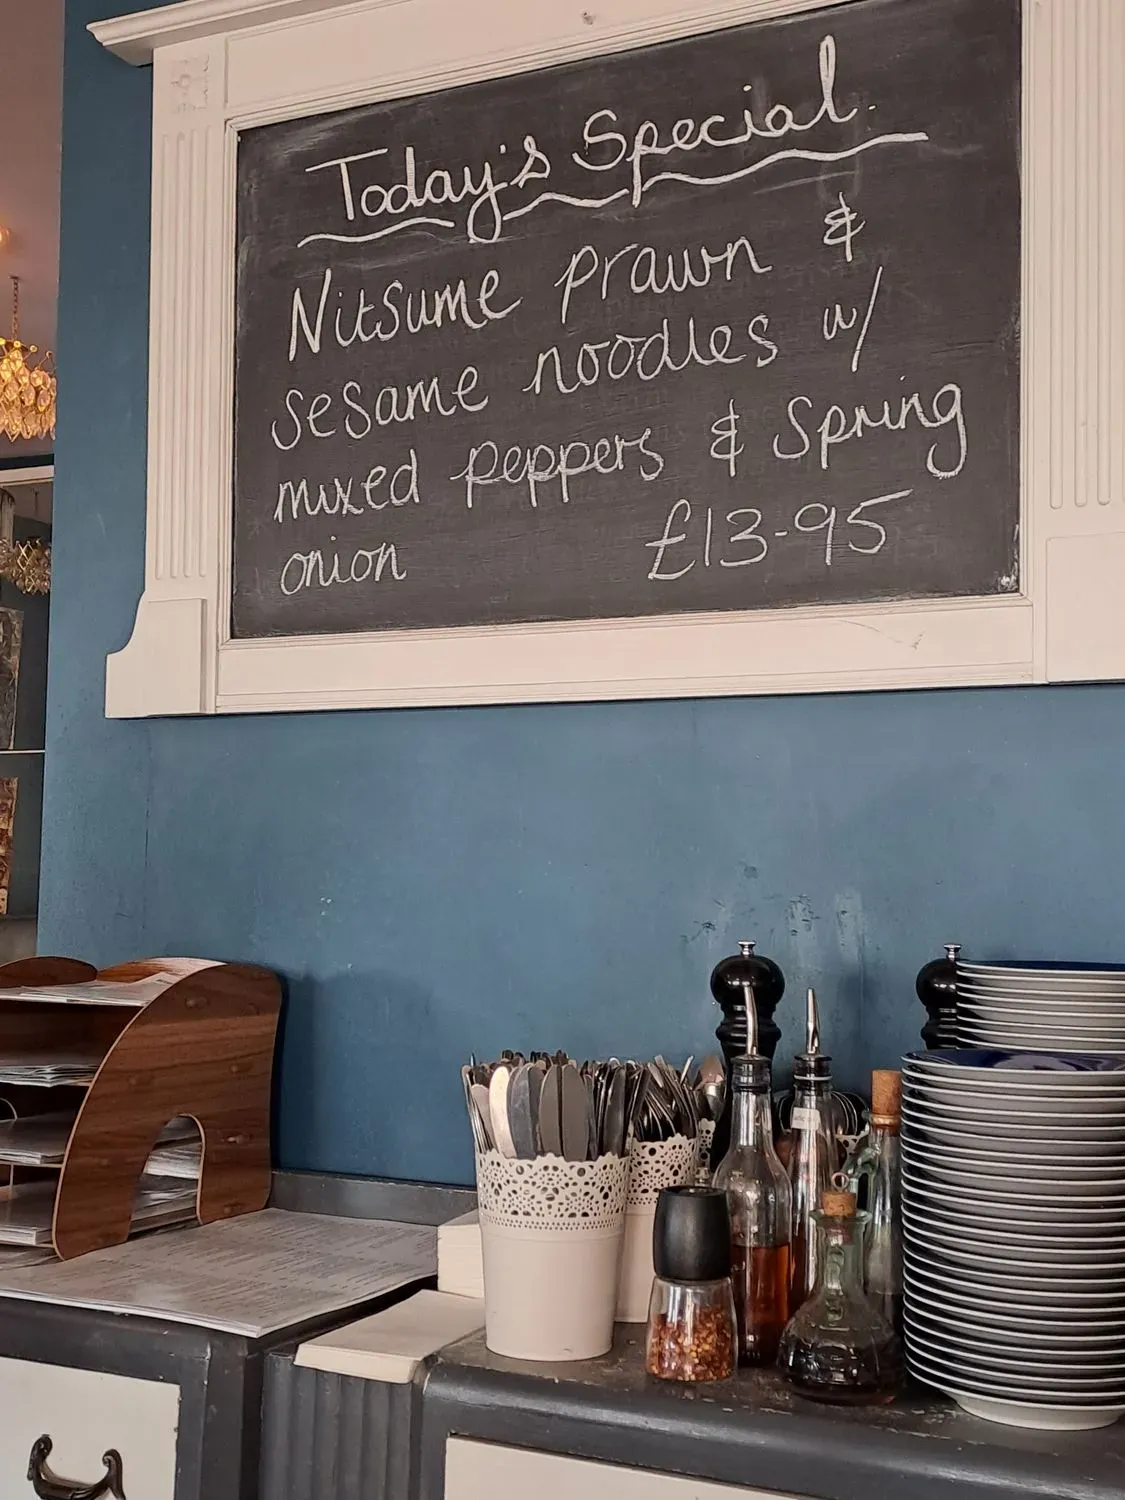 Today's Special.
Nitsume prawn &
sesame noodles w/
mixed peppers & Spring
onion £13-95